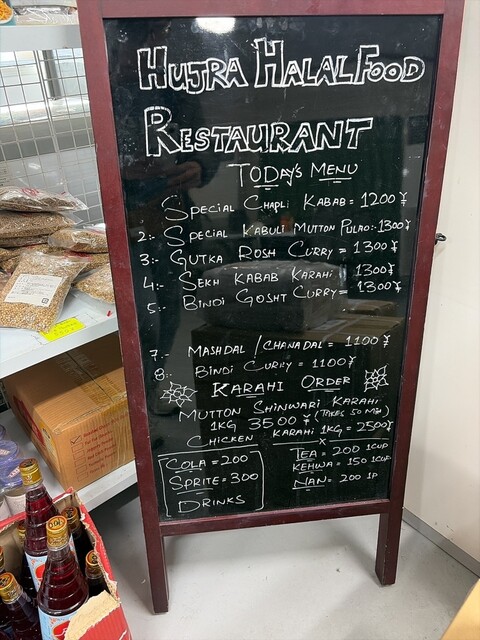 HUJRA HALAL FOOD
RESTAURANT
TODAY'S MENU
SPECIAL CHAPLI KABAB = 1200 ¥
2:- SPECIAL KABULI MUTTON PULAO:- 1300 ¥
3:- GUTKA ROSH CURRY = 1300 ¥
4:- SEKH KABAB KARAHI 1300 ¥
5:- BINDI GOSHT CURRY = 1300 ¥
7:- MASHDAL / CHANADAL = 1100 ¥
8:- BINDI CURRY = 1100 ¥
KARAHI ORDER
MUTTON SHINWARI KARAHI
1KG 3500 ¥ (TAKES 50 MIN)
CHICKEN KARAHI 1KG = 2500 ¥
x
COLA = 200
SPRITE = 300
DRINKS
TEA = 200 1CUP
KEHWA = 150 1CUP
NAN = 200 1P